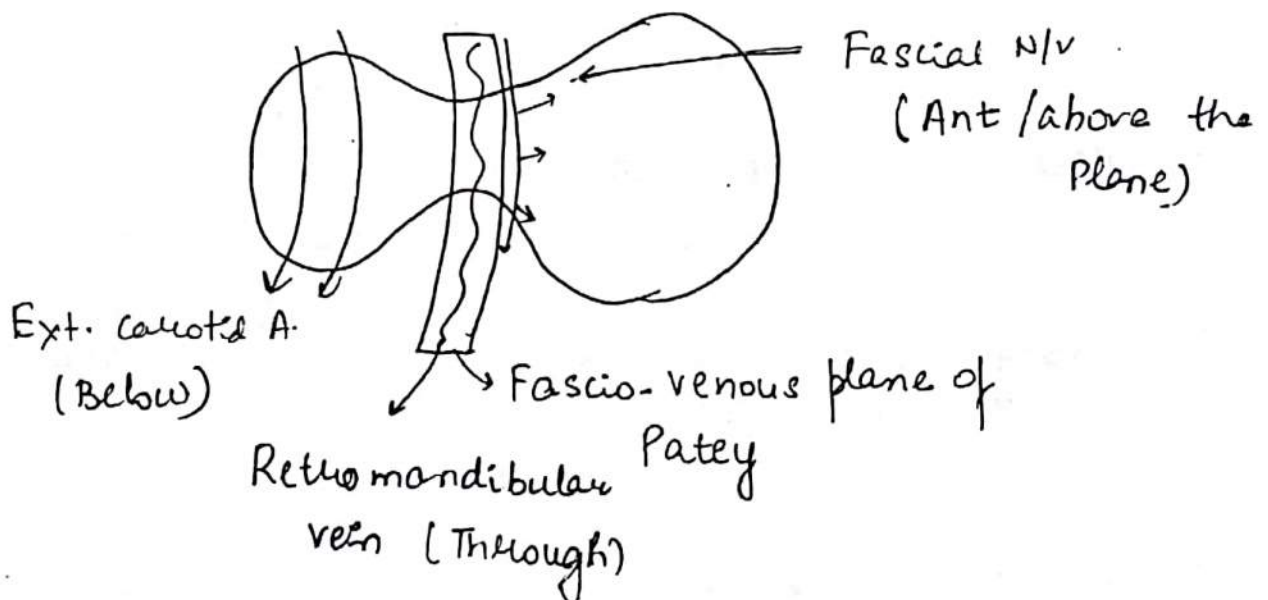 Fascial N/V
(Ant / above the
Plane)
Ext. carotid A.
(Below)
Fascio-venous plane of
Patey
Retromandibular
vein (Through)